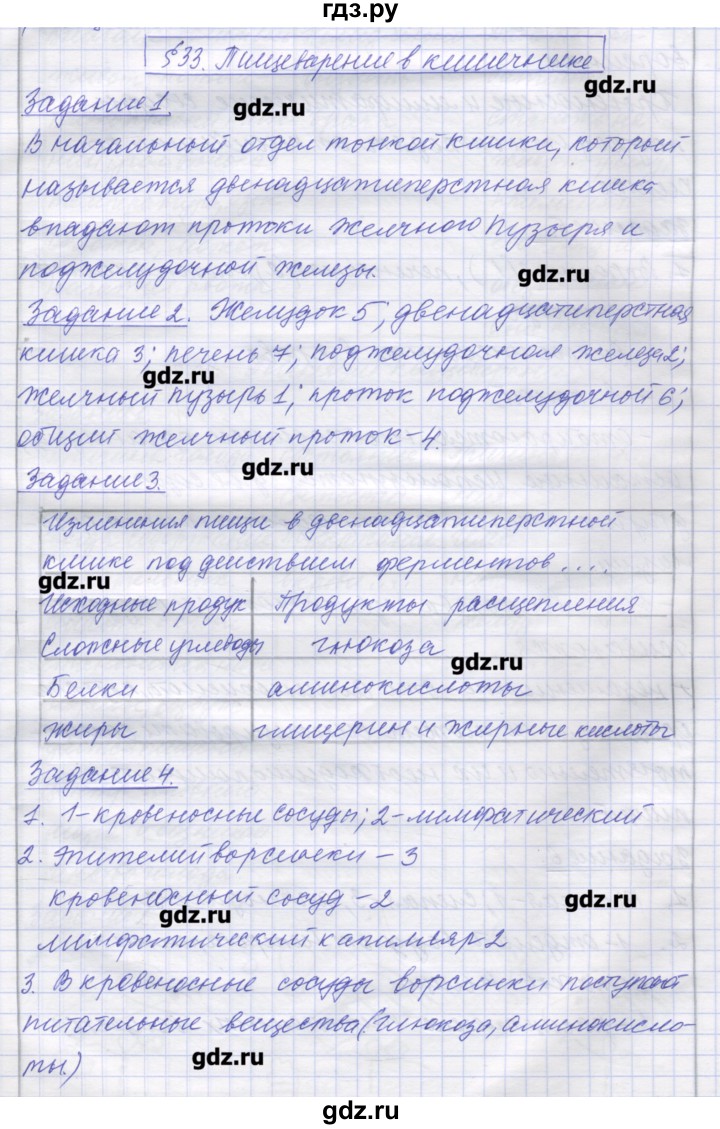 гдз.ру
§33. Пищеварение в кишечнике
Задание 1.
gdz.ru
gdz.ru
В начальный отдел тонкой кишки, который
называется двенадцатиперстная кишка
gdz.ru
впадают протоки желчного пузыря и
поджелудочной железы.
gdz.ru
Задание 2. Желудок 5; двенадцатиперстная
кишка 3; печень 7; поджелудочная железа 2;
gdz.ru
желчный пузырь 1; проток поджелудочной 6;
общий желчный проток-4.
gdz.ru
Задание 3.
Изменения пищи в двенадцатиперстной
кишке под действием ферментов....
gdz.ru
Исходные продук Продукты расщепления
Сложные углеводы глюкоза
gdz.ru
Белки аминокислоты
жиры глицерин и жирные кислоты
Задание 4.
1. 1-кровеносные сосуды; 2-лимфатический
2. Эпителий ворсинки - 3
кровеносный сосуд - 2
gdz.ru
gdz.ru
лимфатический капилляр 2
3. В кровеносные сосуды ворсинки поступают
питательные вещества (глюкоза, аминокисло-
ты.)
gdz.ru
gdz.ru